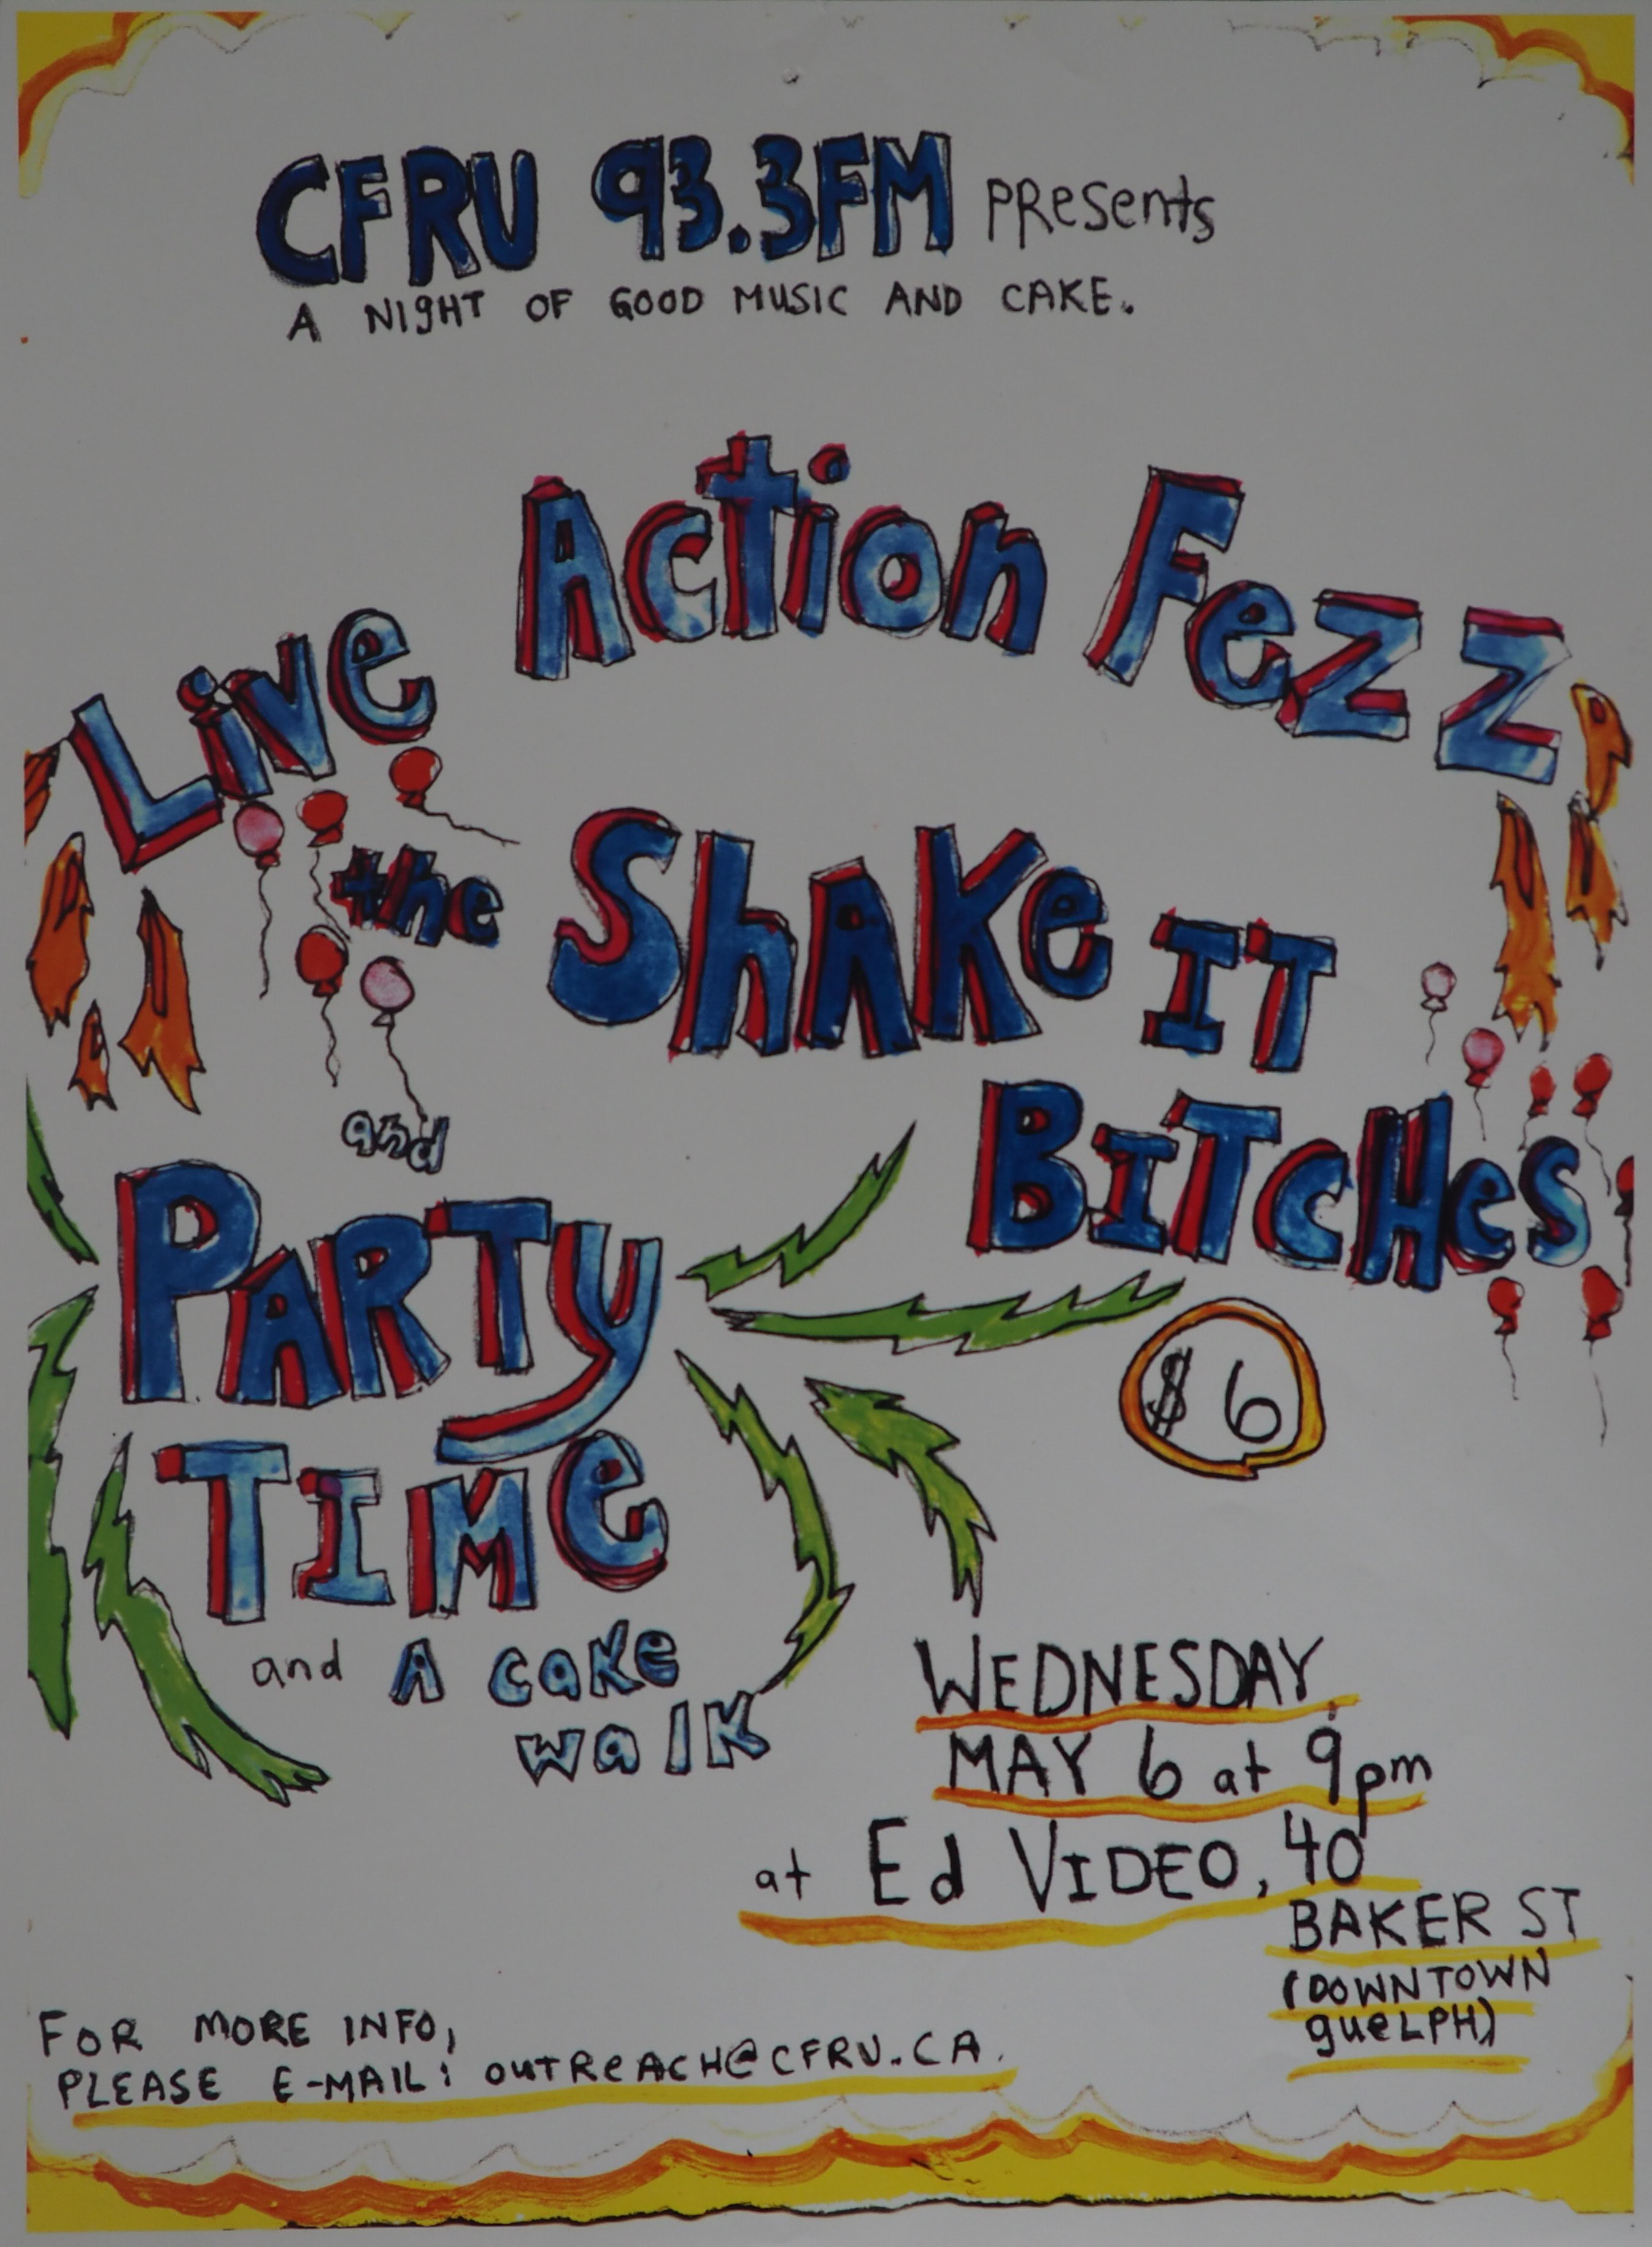 CFRU 93.3FM PResents
A NIGHT OF GOOD MUSIC AND CAKE.
Live Action Fezz
the ShAKe IT
BITcHes
and
PARTy
TIMe
$6
and A cake
walk
WEDNESDAY
MAY 6 at 9pm
at Ed VIDEO, 40
BAKER ST
(DOWNTOWN
gueLPH)
FOR MORE INFO,
PLEASE E-MAIL: outReACH@CFRU.CA.